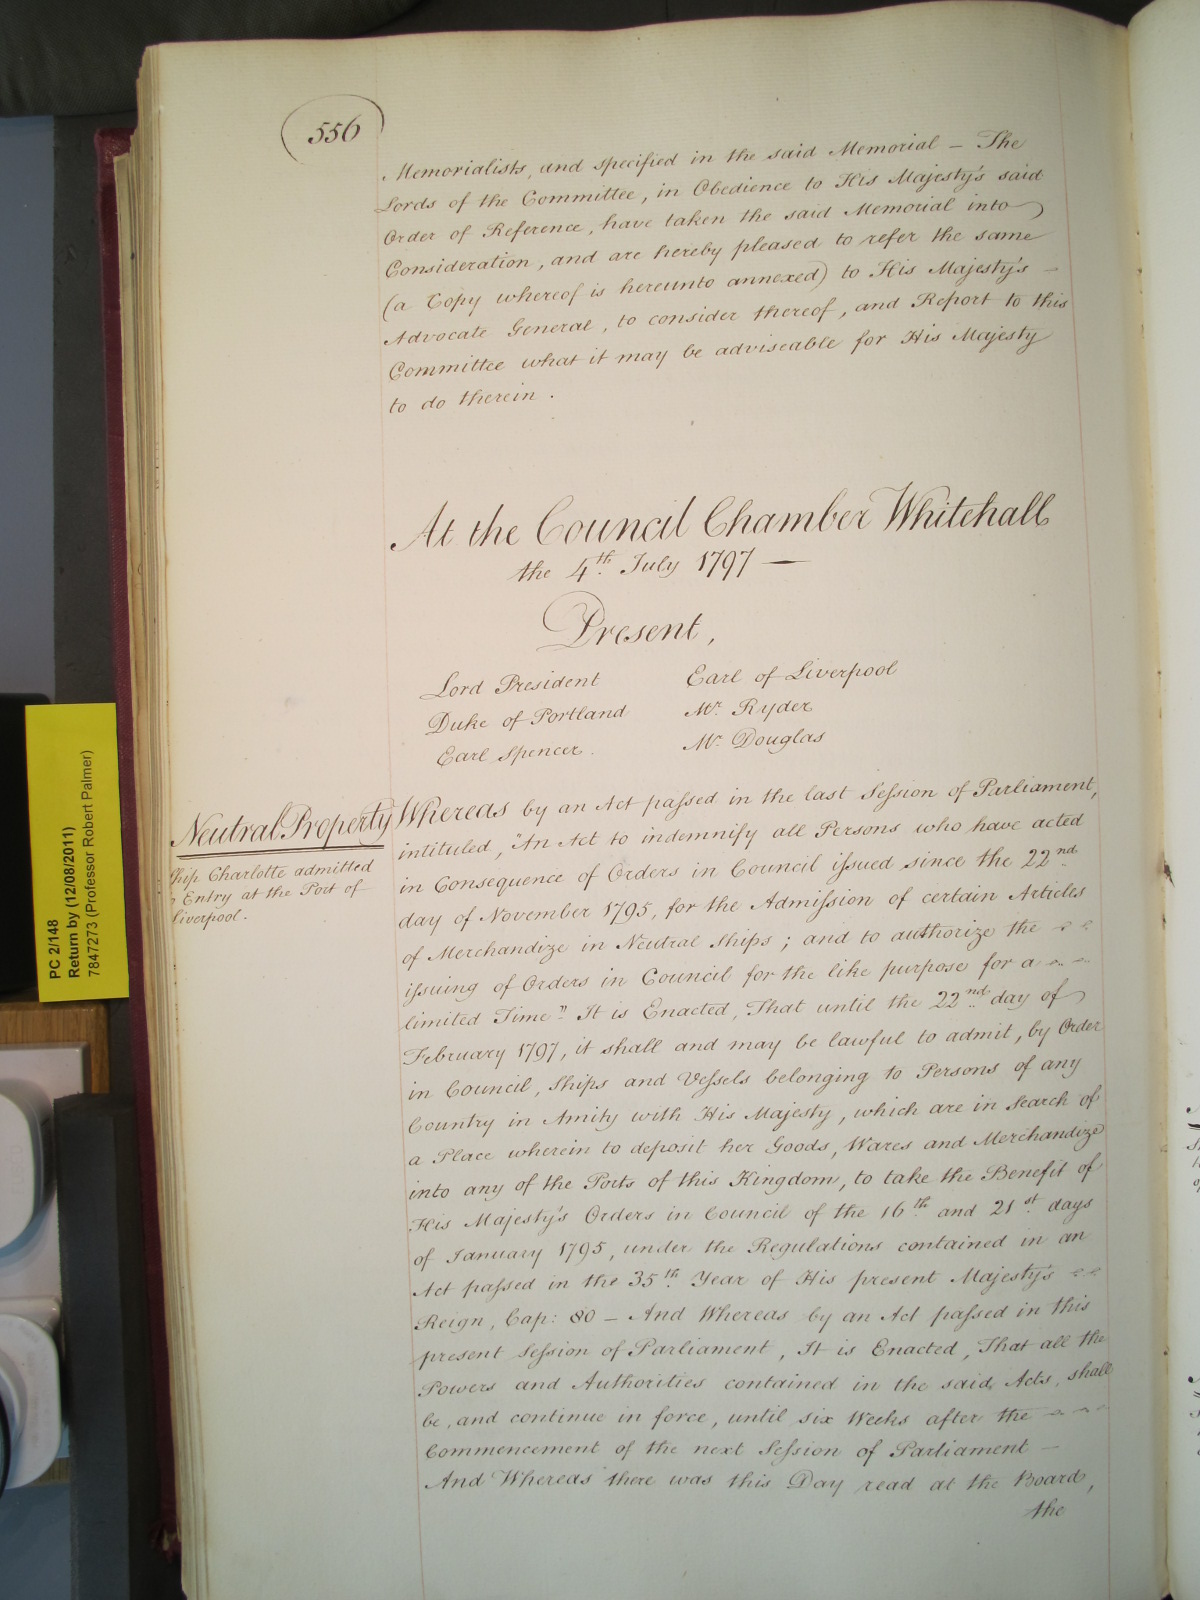 556
Memorialists, and specified in the said Memorial — The
Lords of the Committee, in Obedience to His Majesty's said
Order of Reference, have taken the said Memorial into
Consideration, and are hereby pleased to refer the same
(a Copy whereof is hereunto annexed) to His Majesty's —
Advocate General, to consider thereof, and Report to this
Committee what it may be adviseable for His Majesty
to do therein.
At the Council Chamber Whitehall
the 4th July 1797 —
Present,
Lord President Earl of Liverpool
Duke of Portland Mr. Ryder
Earl Spencer. Mr. Douglas
Neutral Property
Ship Charlotte admitted
Entry at the Port of
Liverpool.
Whereas by an Act passed in the last Session of Parliament,
intituled, "An Act to indemnify all Persons who have acted
in Consequence of Orders in Council issued since the 22nd
day of November 1795, for the Admission of certain Articles
of Merchandize in Neutral Ships; and to authorize the
issuing of Orders in Council for the like purpose for a
limited Time" It is Enacted, That until the 22nd day of
February 1797, it shall and may be lawful to admit, by Order
in Council, Ships and Vessels belonging to Persons of any
Country in Amity with His Majesty, which are in Search of
a Place wherein to deposit her Goods, Wares and Merchandize
into any of the Ports of this Kingdom, to take the Benefit of
His Majesty's Orders in Council of the 16th and 21st days
of January 1795, under the Regulations contained in an
Act passed in the 35th Year of His present Majesty's
Reign, Cap: 80 — And Whereas by an Act passed in this
present Session of Parliament, It is Enacted, That all the
Powers and Authorities contained in the said Acts, shall
be, and continue in force, until six Weeks after the
Commencement of the next Session of Parliament —
And Whereas there was this Day read at the Board,
the
PC 2/148
Return by (12/08/2011)
7847273 (Professor Robert Palmer)